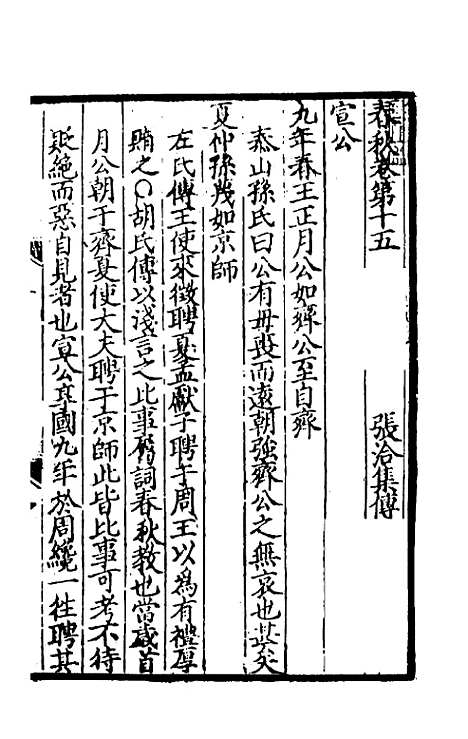 春秋卷第十五　張洽集傳
宣公
九年春王正月公如齊公至自齊
泰山孫氏曰公有毋喪而遠朝強齊公之無哀也甚矣
夏仲孫蔑如京師
左氏傳王使來徵聘夏孟獻子聘于周王以為有禮厚
賄之○胡氏傳以淺言之比事屬詞春秋教也當歲首
月公朝于齊夏使大夫聘于京師此皆比事可考不待
貶絶而惡自見者也宣公享國九年於周纔一往聘其